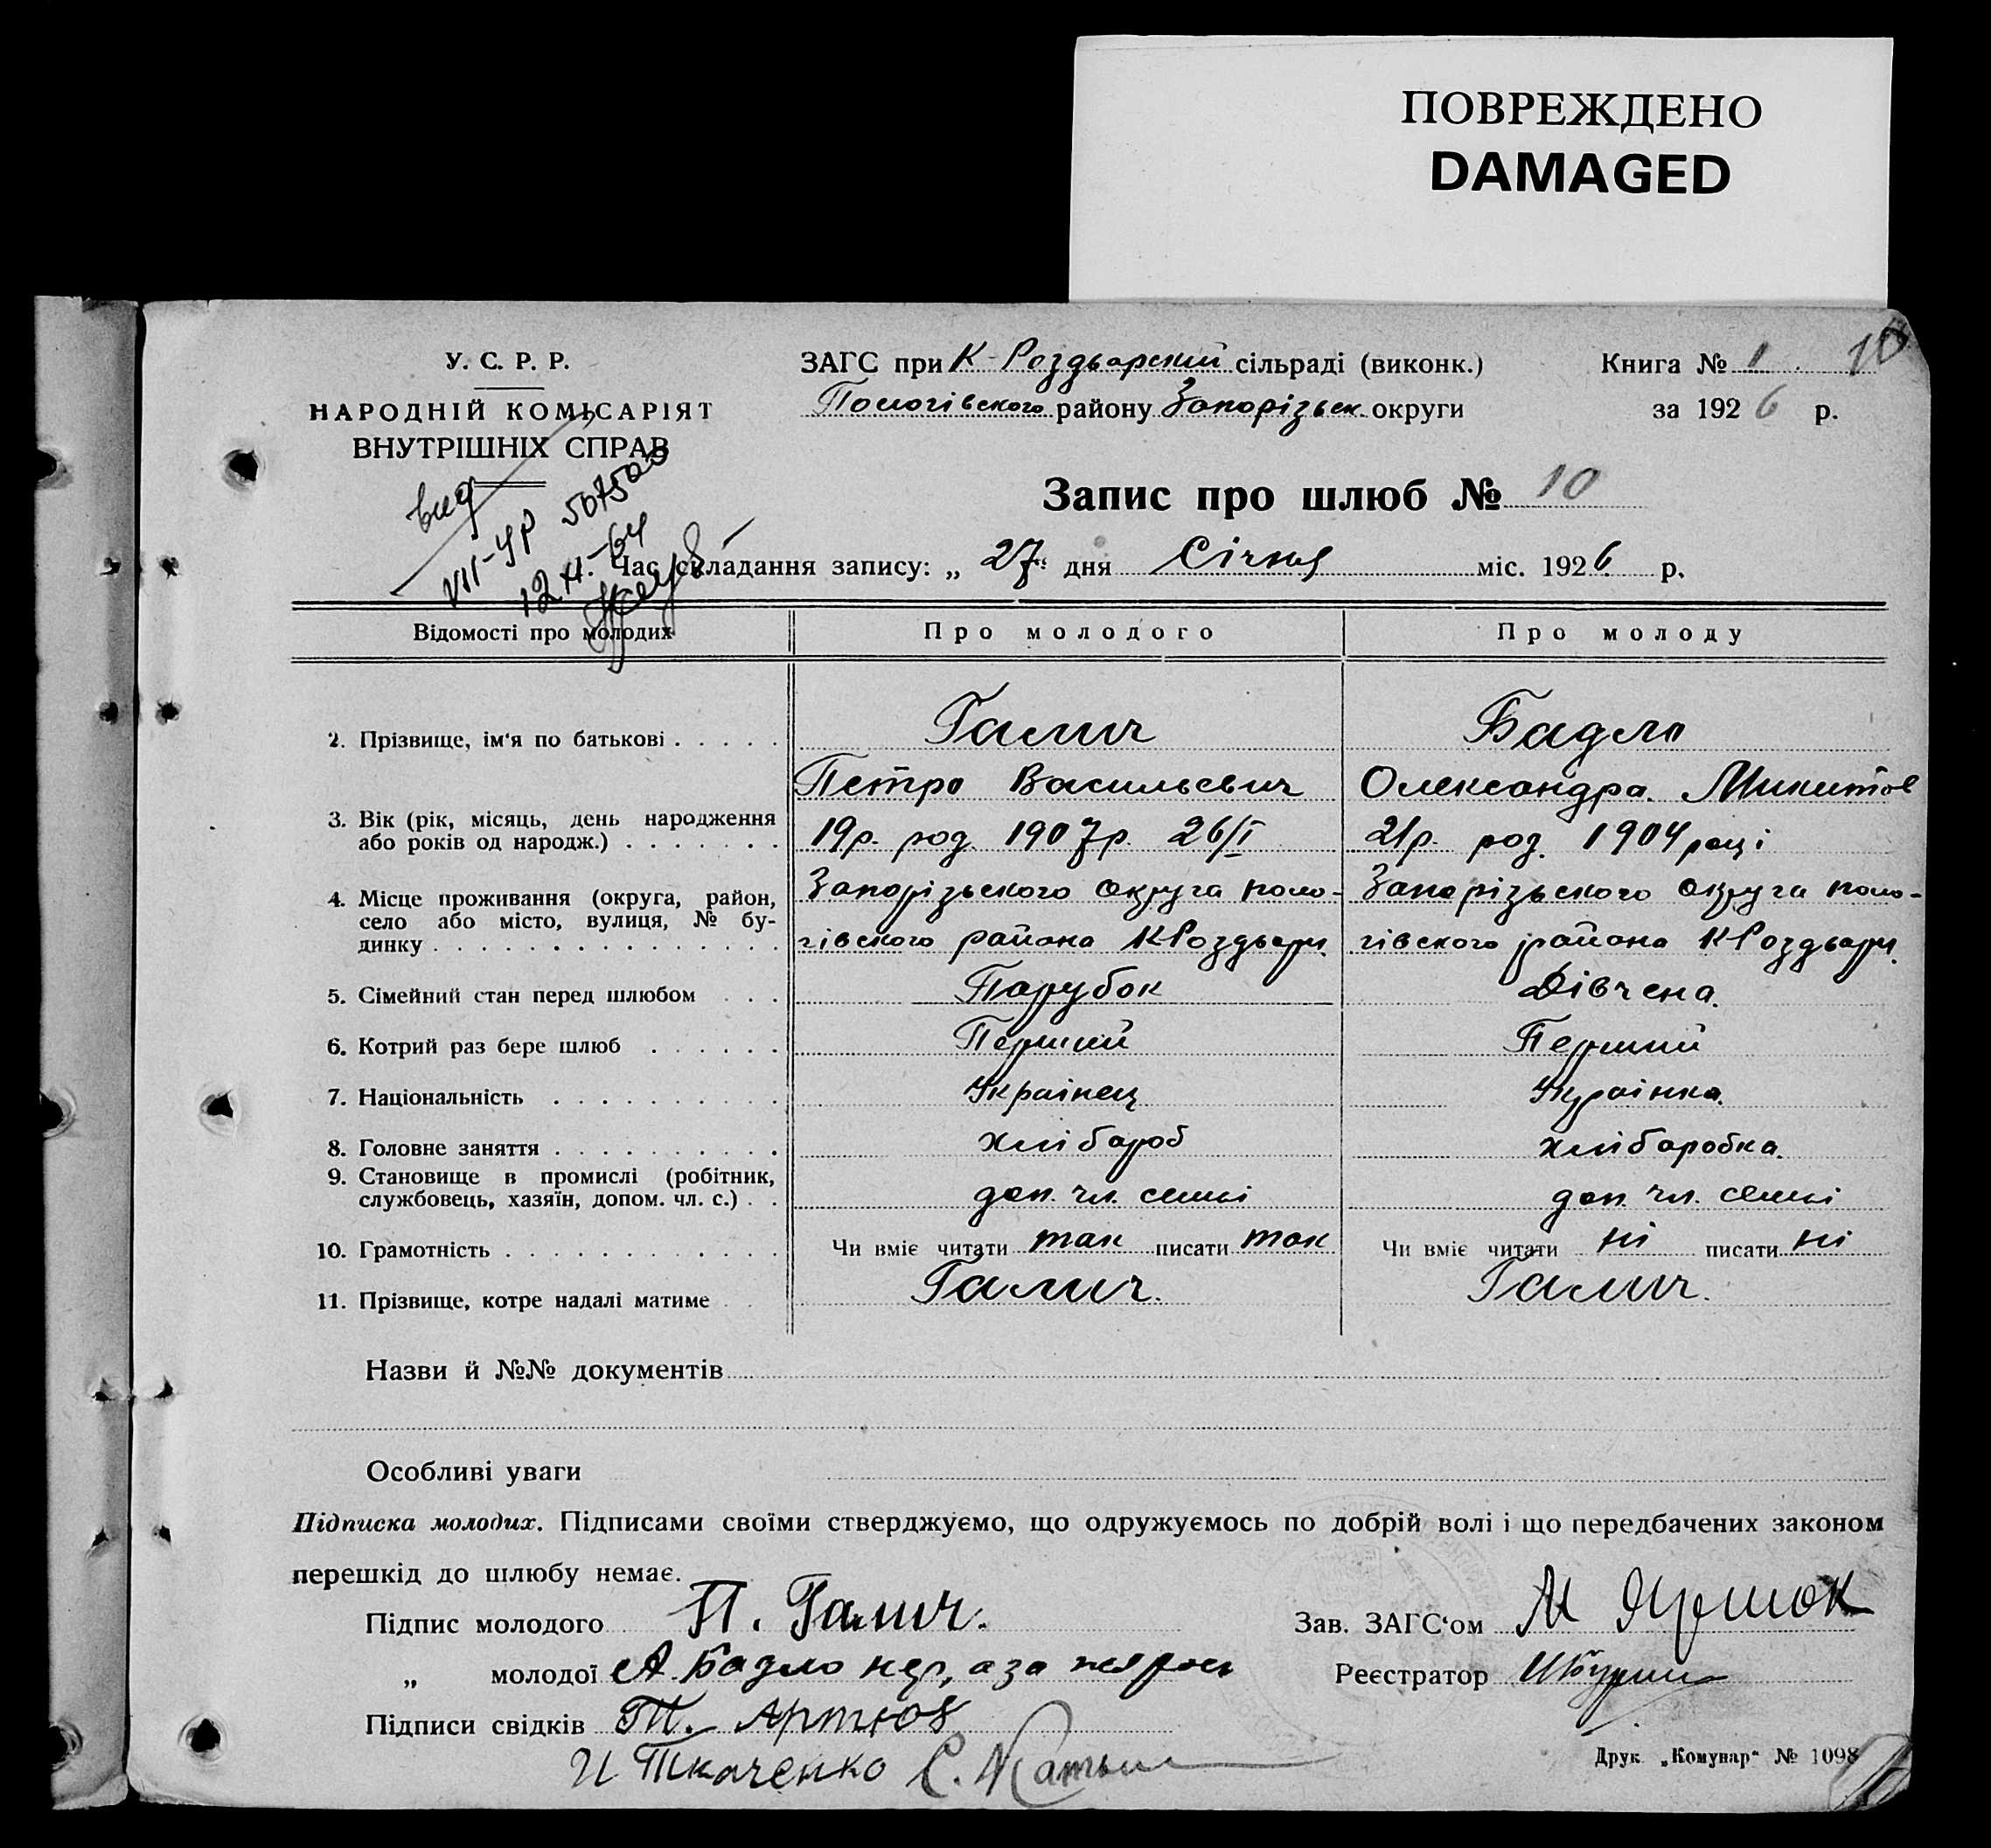 ПОВРЕЖДЕНО
DAMAGED
У. С. Р. Р.
НАРОДНІЙ КОМІСАРІЯТ
ВНУТРІШНІХ СПРАВ
ЗАГС при К-Роздьорский сільраді (виконк.)
Пологівського району Запорізьк. округи
Книга № 1 10
за 1926 р.
вид
VII-УР 507500
12 II-64
Запис про шлюб № 10
Час складання запису: „ 27 “ дня Січня міс. 1926 р.
Відомості про молодих Про молодого Про молоду
2. Прізвище, ім'я по батькові . . . . . Галич Бадло
Петро Васильевич Олександра Микитов
3. Вік (рік, місяць, день народження
або років од народж.) . . . . . . . 19р. род. 1907р. 26/I 21р. род. 1904 році
4. Місце проживання (округа, район,
село або місто, вулиця, № бу-
динку . . . . . . . . . . . . . . .
Запорізького округа поло- Запорізького округа поло-
гівского района К-Роздьори. гівского района К-Роздьори.
5. Сімейний стан перед шлюбом . . . Парубок Дівчена.
6. Котрий раз бере шлюб . . . . . . Перший Перший
7. Національність . . . . . . . . . . Украінец Украінка.
8. Головне заняття . . . . . . . . . . хлібароб хлібаробка.
9. Становище в промислі (робітник,
службовець, хазяїн, допом. чл. с.) . . доп. чл. семьі доп. чл. семьі
10. Грамотність . . . . . . . . . . . . Чи вміє читати так писати так Чи вміє читати ні писати ні
11. Прізвище, котре надалі матиме . . Галич. Галич.
Назви й №№ документів
Особливі уваги
Підписка молодих. Підписами своїми стверджуємо, що одружуємось по добрій волі і що передбачених законом
перешкід до шлюбу немає.
Підпис молодого П. Галич. Зав. ЗАГС'ом М
„ молодої А. Бадло Реєстратор
Підписи свідків Т. Артюх
И Ткаченко С.
Друк. „Комунар“ № 1098